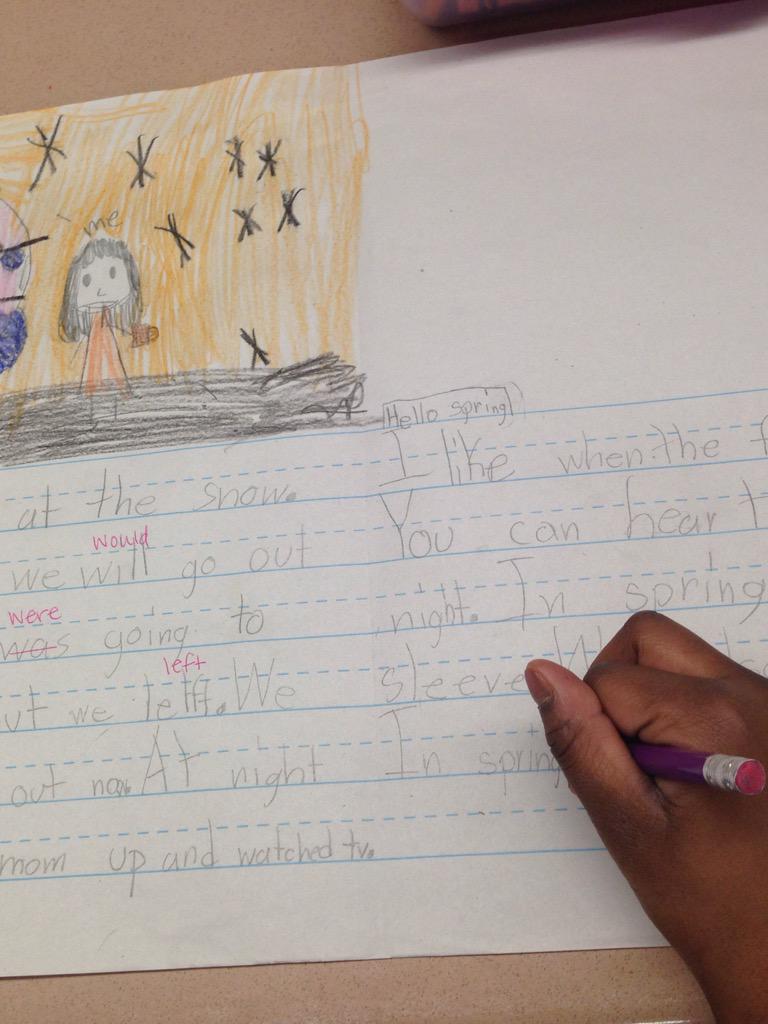 me
at the snow.
would
we will go out
were
was going to
left
we letft. We
out now. At night
mom up and watched tv.
Hello spring
I like when the
You can hear
night. In spring
sleeve
In spring